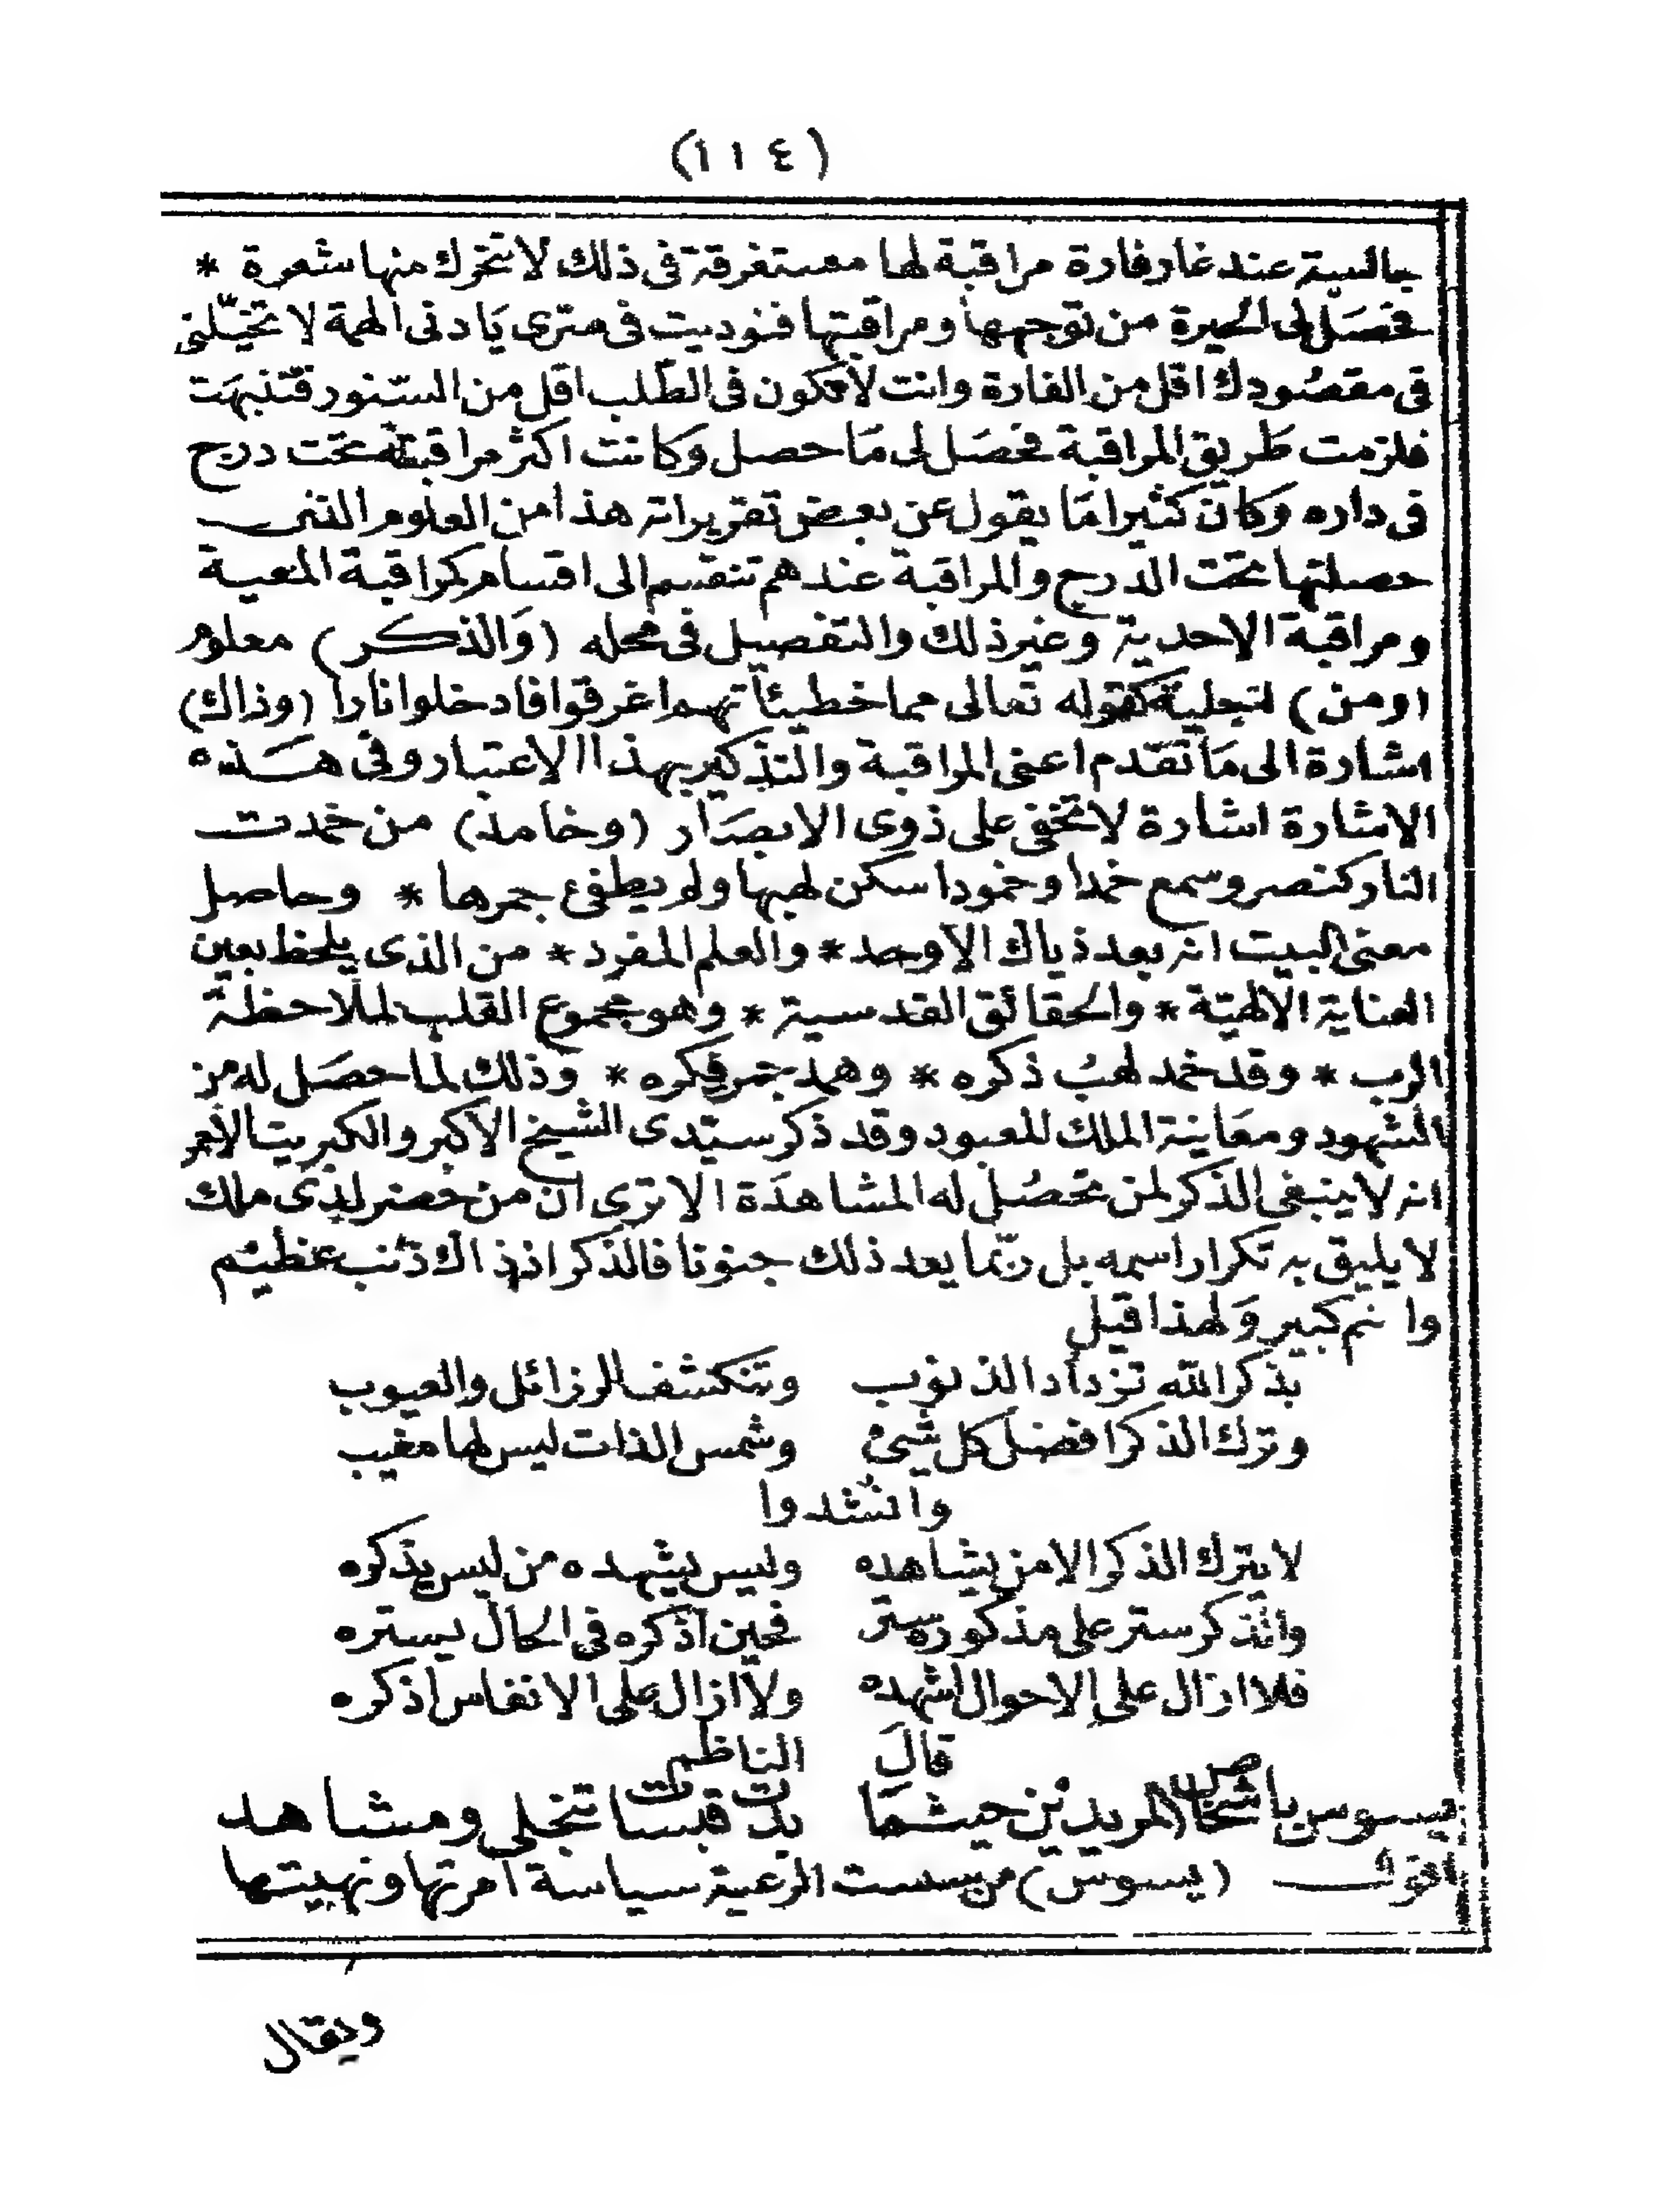 (١١٤)
جالسة عند غار فارة مراقبة لها مستغرقة فى ذلك لا تتحرك منها شعرة *
فحصَل لى الحيرة من توجهها ومراقبتها فنوديت فى سرى يَا دنى الهمة لا تخيّلنى
فى مقصُودك اقل من الفارة وانت لا تكون فى الطّلب اقل من السّنور فتنبهَت
فلزمت طريق المراقبة فحصَل لى مَا حصل وَكانت اكثر مراقبته تحت درج
فى داره وَكان كثيرا مَا يقول عن بعض تقريراته هذا من العلوم التى
حصلتها تحت الدرج والمراقبة عندهم تنقسم الى اقسام كمراقبة المعية
ومراقبة الاحدية وغير ذلك والتفصيل فى محله (وَالذكر) معلوم
(ومن) تعليلية كقوله تعالى مما خطيئاتهم اغرقوا فادخلوا نارا (وذاك)
اشارة الى مَا تقدم اعنى المراقبة والتذكير بهذا الاعتبار وفى هذه
الاشارة اشارة لا تخفى على ذوى الابصَار (وخامد) من خمدت
النار كنصر وسمع خمدا وخمودا سكن لهبها ولم يطفئ جمرها * وحاصل
معنى البيت انه بعد ذياك الاوحد * والعلم المفرد * من الذى يلحظ بعين
العناية الالهيّة * والحقائق القدسية * وهو مجموع القلب لملاحظة
الرب * وقد خمد لهبُ ذكره * وهمد جمر فكره * وذلك لما حصَل له من
الشهود ومعَاينة الملك المعبود وقد ذكر سيّدى الشيخ الاكبر والكبريت الاحمر
انه لا ينبغى الذكر لمن تحصُل له المشاهدَة الا ترى ان من حضر لدى ملك
لا يليق به تكرار اسمه بل ربّما يعد ذلك جنونا فالذكر اذ ذاك ذنب عظيم
واثم كبير وَلهذا قيل
بذكر الله تزداد الذنوب وتنكشف الرزائل والعيوب
وترك الذكر افضل كل شئ وشمس الذات ليس لها مغيب
وانشدوا
لا يترك الذكر الا من يشاهده وليس يشهده من ليس يذكره
والذكر ستر على مذكوره ستر فحين اذكره فى الحال يستره
فلا ازال على الاحوال اشهده ولا ازال على الانفاس اذكره
قالَ الناظم
يسوس باشخاص المريدين حيثما بدت قبسات تجلى ومشاهد
اقول (يسوس) من سست الرعية سياسة امرتها ونهيتها
ويقال